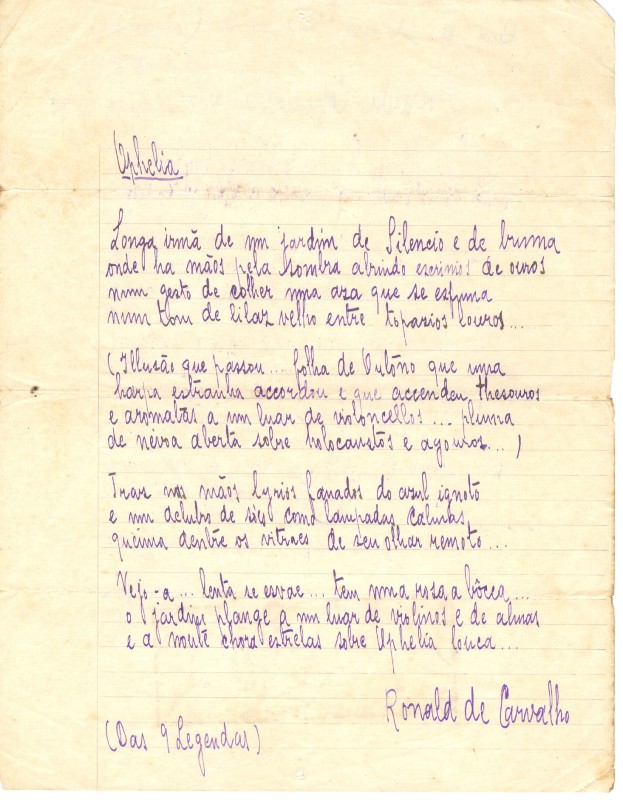 Ophelia
Longa irmã de um jardim de Silencio e de bruma
onde ha mãos pela sombra abrindo escrinios de ouros
num gesto de colher uma aza que se esfuma
num tom de lilaz velho entre topazios louros...
(Illusão que passou... folha de Outôno que uma
harpa estranha accordou e que accendeu thesouros
e aromatas a um luar de violoncellos... pluma
de nevoa aberta sobre holocaustos e agouros...)
Traz nas mãos lyrios fanados do azul ignoto
e um delubro de sóes como lampadas calmas
queima dentre os vitraes de seu olhar remoto...
Vejo-a... lenta se esvae... tem uma rosa a bôcca...
o jardim plange a um luar de violinos e de almas
e a noute chora estrelas sobre Ophelia louca...
Ronald de Carvalho
(Das 9 Legendas)